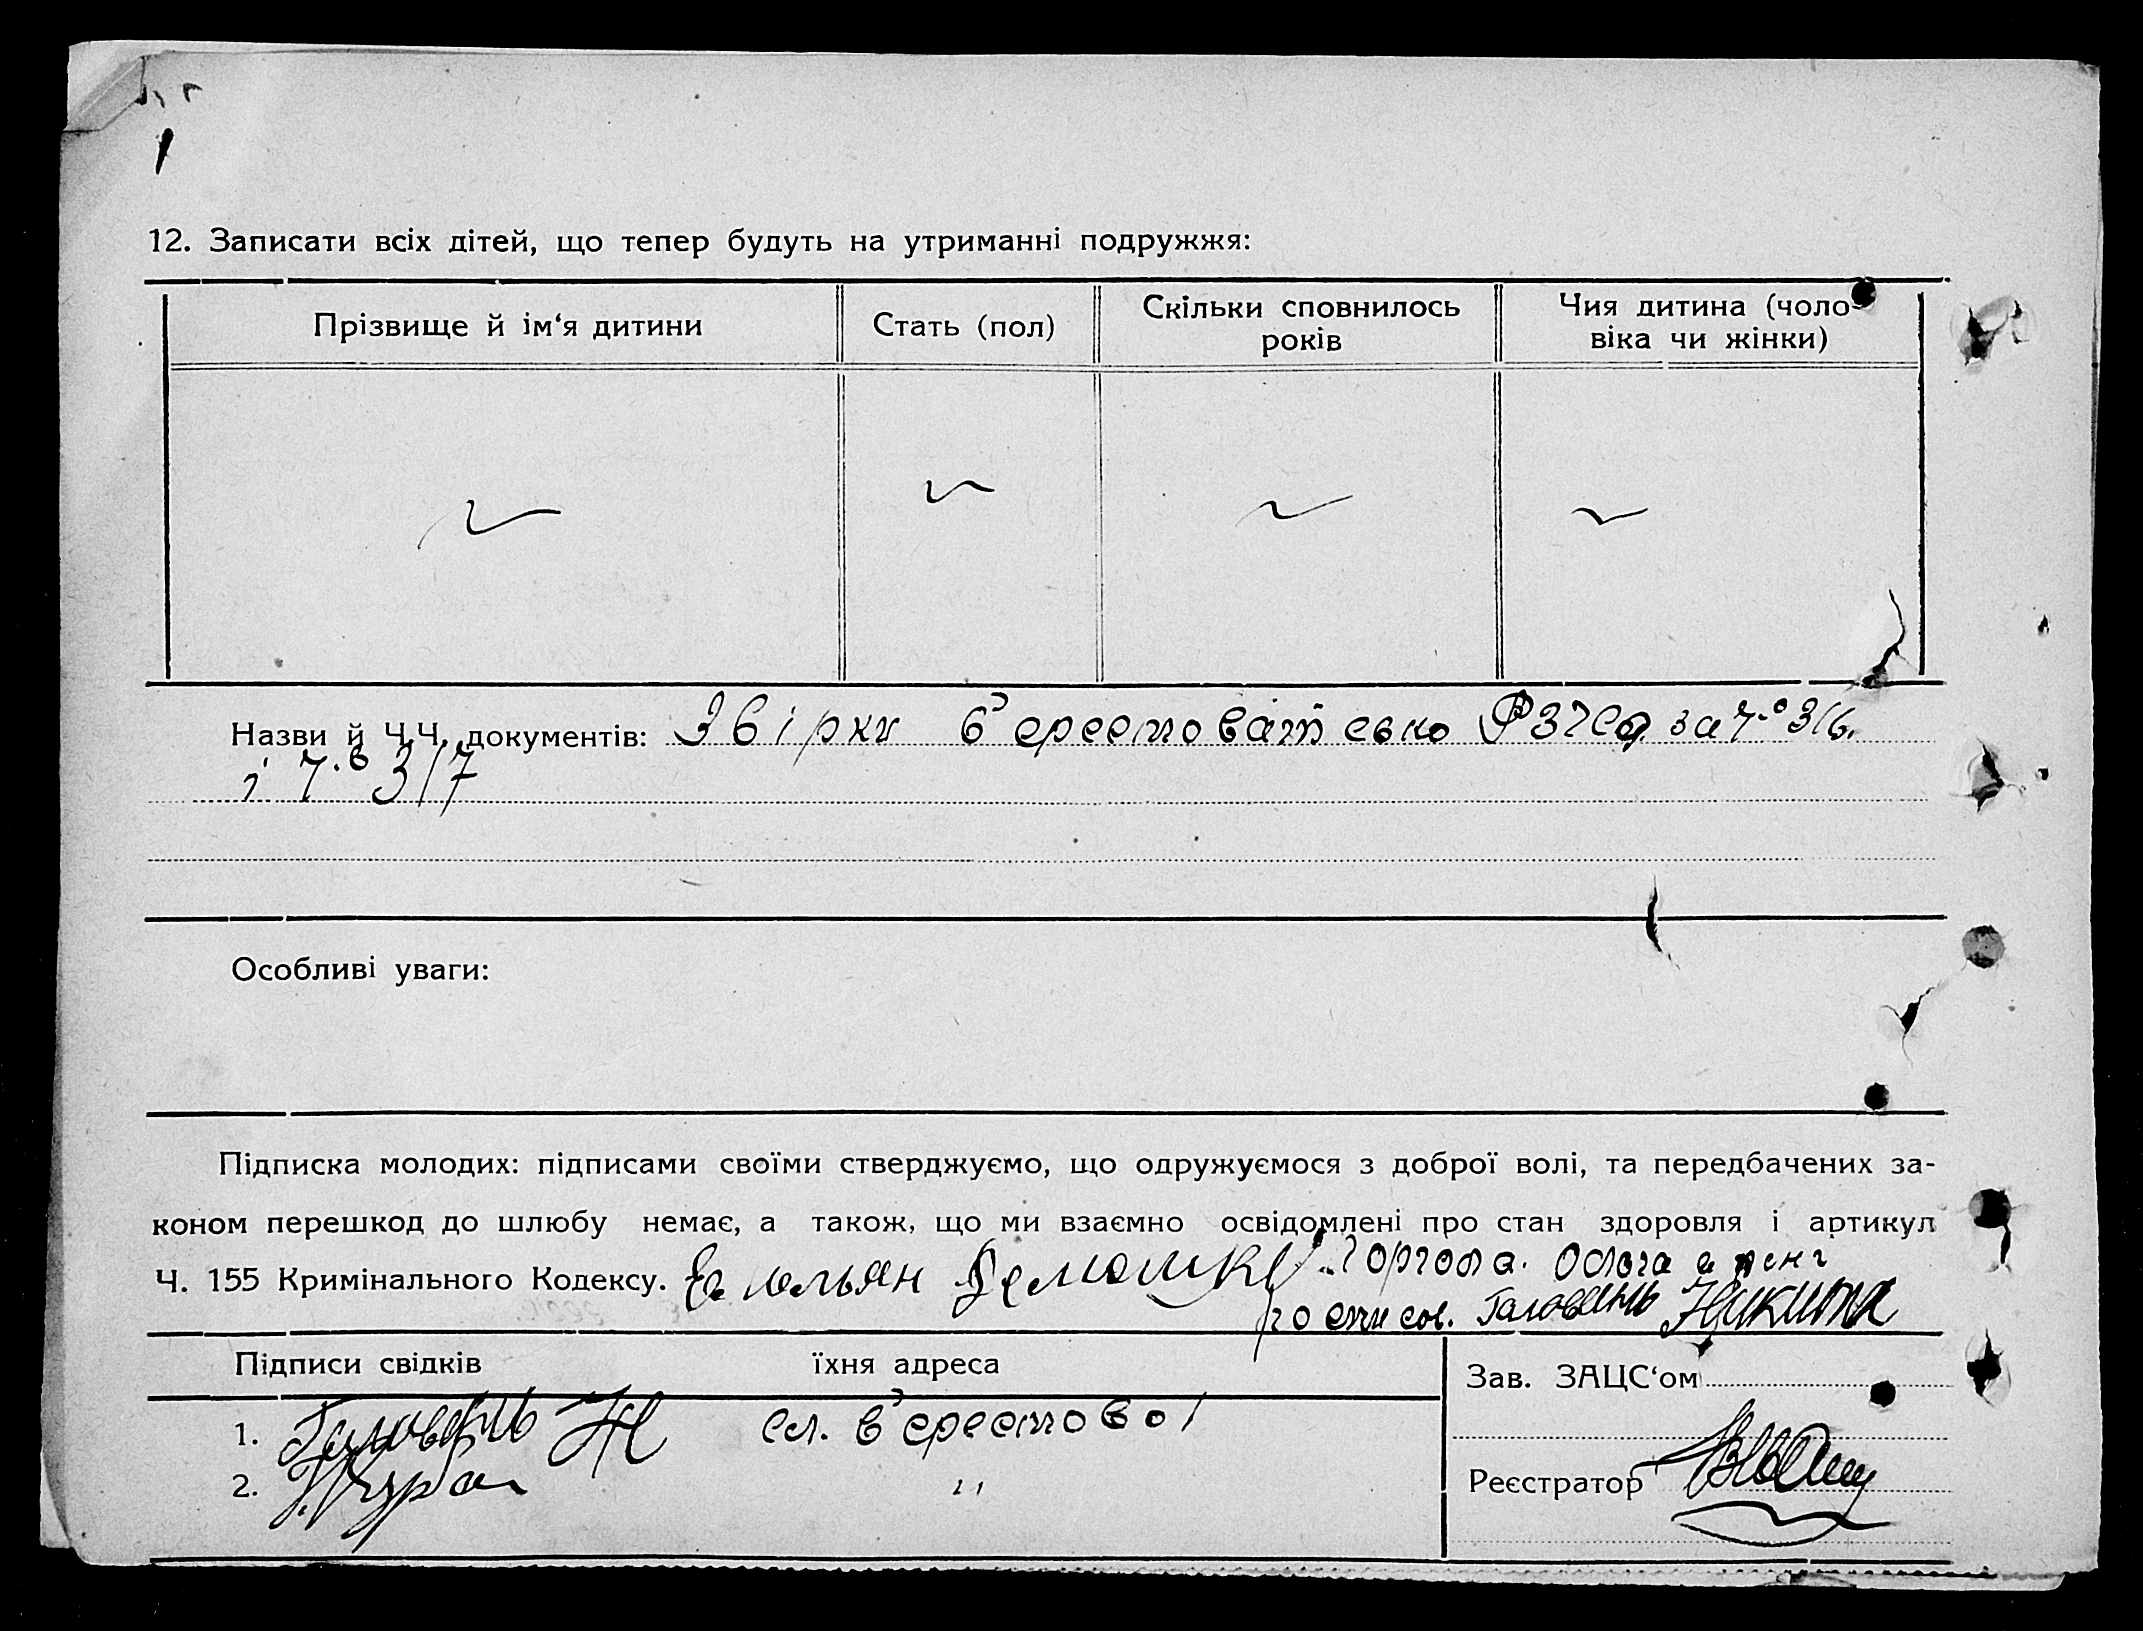 12. Записати всіх дітей, що тепер будуть на утриманні подружжя:
Прізвище й ім‘я дитини
Стать (пол)
Скільки сповнилось років
Чия дитина (чоло-
віка чи жінки)
Назви й Ч.Ч. документів: Звірки за 316.
і 317
Особливі уваги:
Підписка молодих: підписами своїми стверджуємо, що одружуємося з доброї волі, та передбачених за-
коном перешкод до шлюбу немає, а також, що ми взаємно освідомлені про стан здоровля і артикул
Ч. 155 Кримінального Кодексу. Головань Никита
Підписи свідків їхня адреса
Зав. ЗАЦС‘ом
1. Головань Н сл. Берестової
2. "
Реєстратор